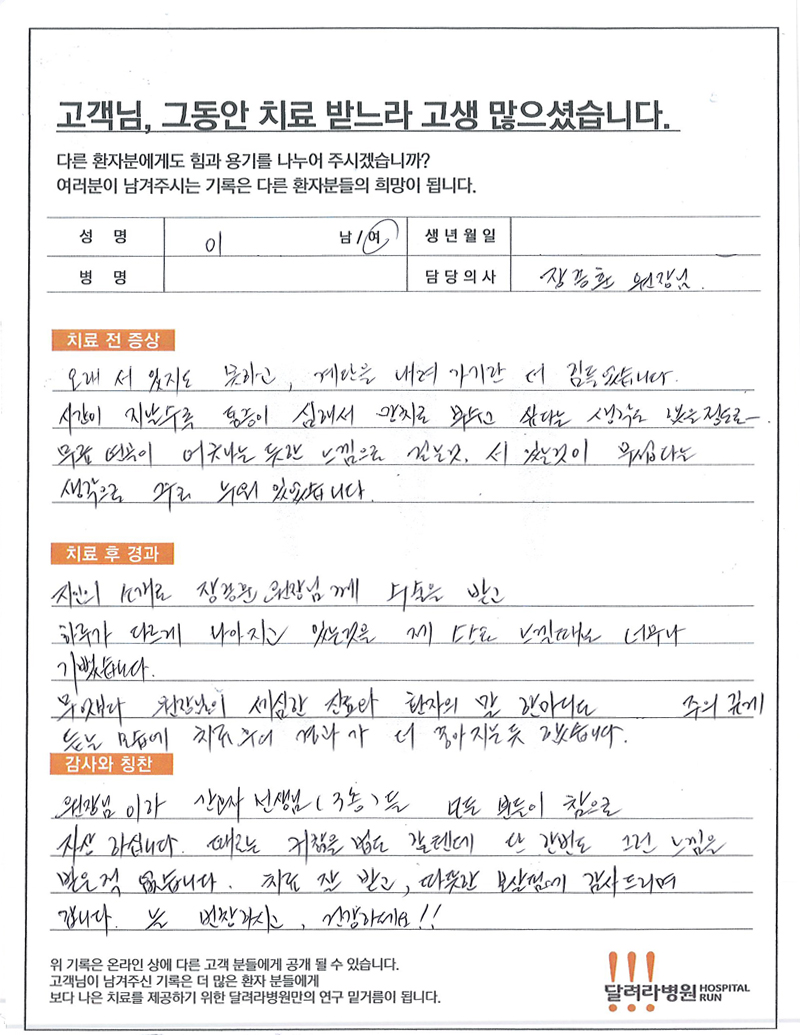 고객님, 그동안 치료 받느라 고생 많으셨습니다.
다른 환자분에게도 힘과 용기를 나누어 주시겠습니까?
여러분이 남겨주시는 기록은 다른 환자분들의 희망이 됩니다.
성 명 이 남/여 생년월일
병 명 담당의사 장 원장님.
치료 전 증상
오래 서 있지도 못하고, 계단을 내려 가기란 더 힘들었습니다.
시간이 지날수록 통증이 심해서 망치로 부수고 싶다는 생각도 했을정도로
무릎 연골이 어긋나는 듯한 느낌으로 걷는것, 서 있는것이 무섭다는
생각으로 주로 누워 있었습니다.
치료 후 경과
지인의 소개로 장 원장님께 수술을 받고
하루가 다르게 나아지고 있는것을 제 느낄때는 너무나
기뻤습니다.
무엇보다 원장님의 세심한 진료와 환자의 말 한마디도 주의 깊게
듣는 모습에 치료 후의 경과가 더 좋아지는듯 했습니다.
감사와 칭찬
원장님 이하 간호사 선생님(3층)들 모든 분들이 참으로
자상 하십니다. 때로는 귀찮을 법도 할텐데 단 한번도 그런 느낌을
받은적 없습니다. 치료 잘 받고, 따뜻한 보살핌에 감사드리며
갑니다. 늘 번창하시고, 건강하세요!!
위 기록은 온라인 상에 다른 고객 분들에게 공개 될 수 있습니다.
고객님이 남겨주신 기록은 더 많은 환자 분들에게
보다 나은 치료를 제공하기 위한 달려라병원만의 연구 밑거름이 됩니다.
달려라병원 HOSPITAL RUN